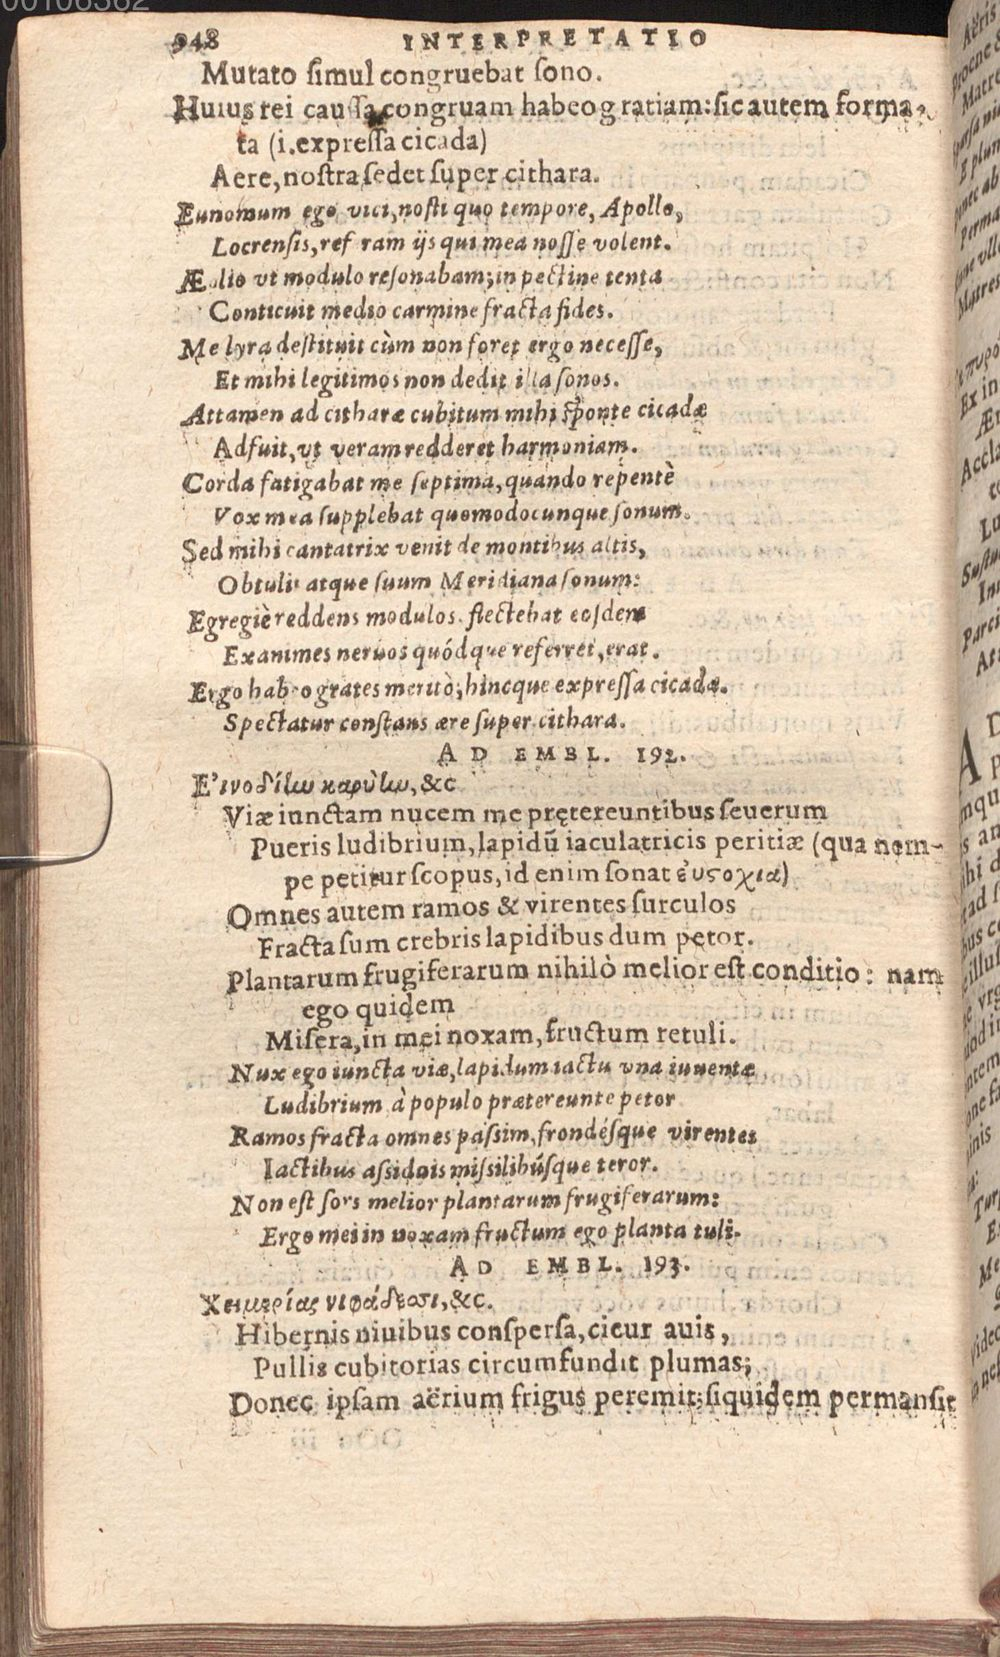 00106362
948 INTERPRETATIO
Mutato ſimul congruebat ſono.
Huius rei cauſſa congruam habeo gratiam: ſic autem forma-
ta (i. expreſſa cicada)
Aere, noſtra ſedet ſuper cithara.
Eunomum ego vici, noſti quo tempore, Apollo,
Locrenſis, ref ram ijs qui mea noſſe volent.
Æolio vt modulo reſonabam; in pectine tenta
Conticuit medio carmine fracta fides.
Me lyra deſtituit cùm non foret ergo neceſſe,
Et mihi legitimos non dedit illa ſonos.
Attamen ad citharæ cubitum mihi ſponte cicadæ
Adfuit, vt veram redderet harmoniam.
Corda fatigabat me ſeptima, quando repentè
Vox mea ſupplebat quomodocunque ſonum.
Sed mihi cantatrix venit de montibus altis,
Obtulit atque ſuum Meridiana ſonum:
Egregiè reddens modulos. flectebat eoſdem
Exanimes neruos quódque referret, erat.
Ergo habeo grates meritò; hincque expreſſa cicada.
Spectatur conſtans ære ſuper cithara.
AD EMBL. 192.
Εἰνοδίην καρύην, &c
Viæ iunctam nucem me pręetereuntibus ſeuerum
Pueris ludibrium, lapidū iaculatricis peritiæ (qua nem-
pe petitur ſcopus, id enim ſonat εὐστοχια)
Omnes autem ramos & virentes ſurculos
Fracta ſum crebris lapidibus dum petor.
Plantarum frugiferarum nihilò melior eſt conditio: nam
ego quidem
Miſera, in mei noxam, fructum retuli.
Nux ego iuncta viæ, lapidum iactu vna iuuentæ
Ludibrium à populo prætereunte petor
Ramos fracta omnes paſsim, frondéſque virentes
Iactibus aſsiduis miſsilibúſque teror.
Non eſt ſors melior plantarum frugiferarum:
Ergo mei in noxam fructum ego planta tuli.
AD EMBL. 193.
Χειμερίας νιφάδεσσι, &c.
Hibernis niuibus conſperſa, cicur auis,
Pullis cubitorias circumfundit plumas;
Donec ipſam aërium frigus peremit; ſiquidem permanſit